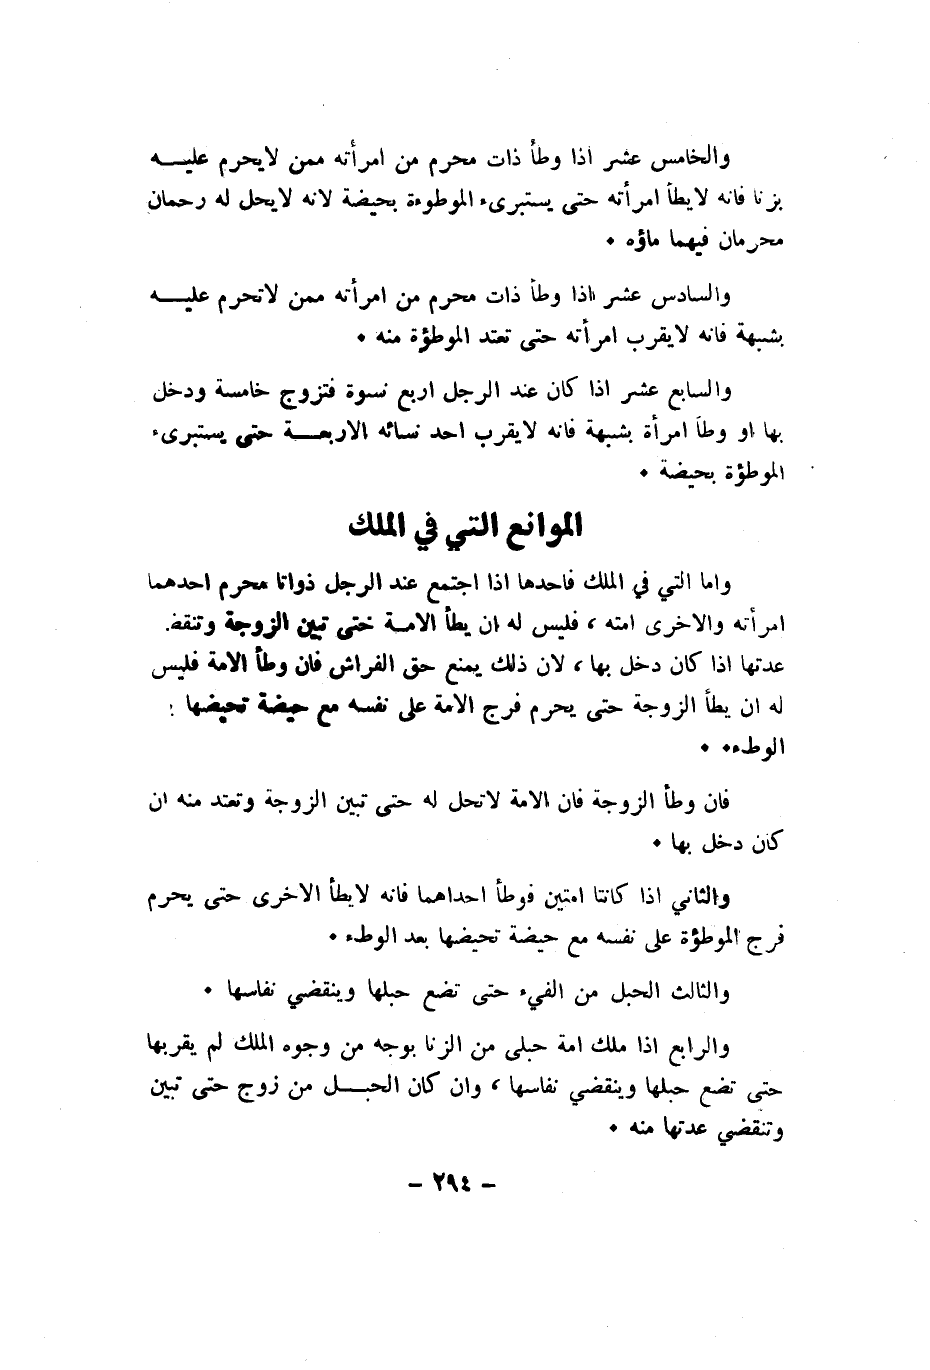 والخامس عشر اذا وطأ ذات محرم من امرأته ممن لايحرم عليـــه
بزنا فانه لايطأ امرأته حتى يستبرىء الموطوءة بحيضة لانه لايحل له رحمان
محرمان فيهما ماؤه ٠
والسادس عشر اذا وطأ ذات محرم من امرأته ممن لاتحرم عليـــه
بشبهة فانه لايقرب امرأته حتى تعتد الموطؤة منه ٠
والسابع عشر اذا كان عند الرجل اربع نسوة فتزوج خامسة ودخل
بها او وطأ امرأة بشبهة فانه لايقرب احد نسائه الاربعـــة حتى يستبرىء
الموطؤة بحيضة ٠
الموانع التي في الملك
واما التي في الملك فاحدها اذا اجتمع عند الرجل ذواتا محرم احدهما
امرأته والاخرى امته ، فليس له ان يطأ الامــة ختى تبين الزوجة وتنقض
عدتها اذا كان دخل بها ، لان ذلك يمنع حق الفراش فان وطأ الامة فليس
له ان يطأ الزوجة حتى يحرم فرج الامة على نفسه مع حيضة تحيضها
الوطء٠ ٠
فان وطأ الزوجة فان الامة لاتحل له حتى تبين الزوجة وتعتد منه ان
كان دخل بها ٠
والثاني اذا كانتا امتين فوطأ احداهما فانه لايطأ الاخرى حتى يحرم
فرج الموطؤة على نفسه مع حيضة تحيضها بعد الوطء ٠
والثالث الحبل من الفيء حتى تضع حبلها وينقضي نفاسها ٠
والرابع اذا ملك امة حبلى من الزنا بوجه من وجوه الملك لم يقربها
حتى تضع حبلها وينقضي نفاسها ، وان كان الحبـــل من زوج حتى تبين
وتنقضي عدتها منه ٠
– ٢٩٤ –